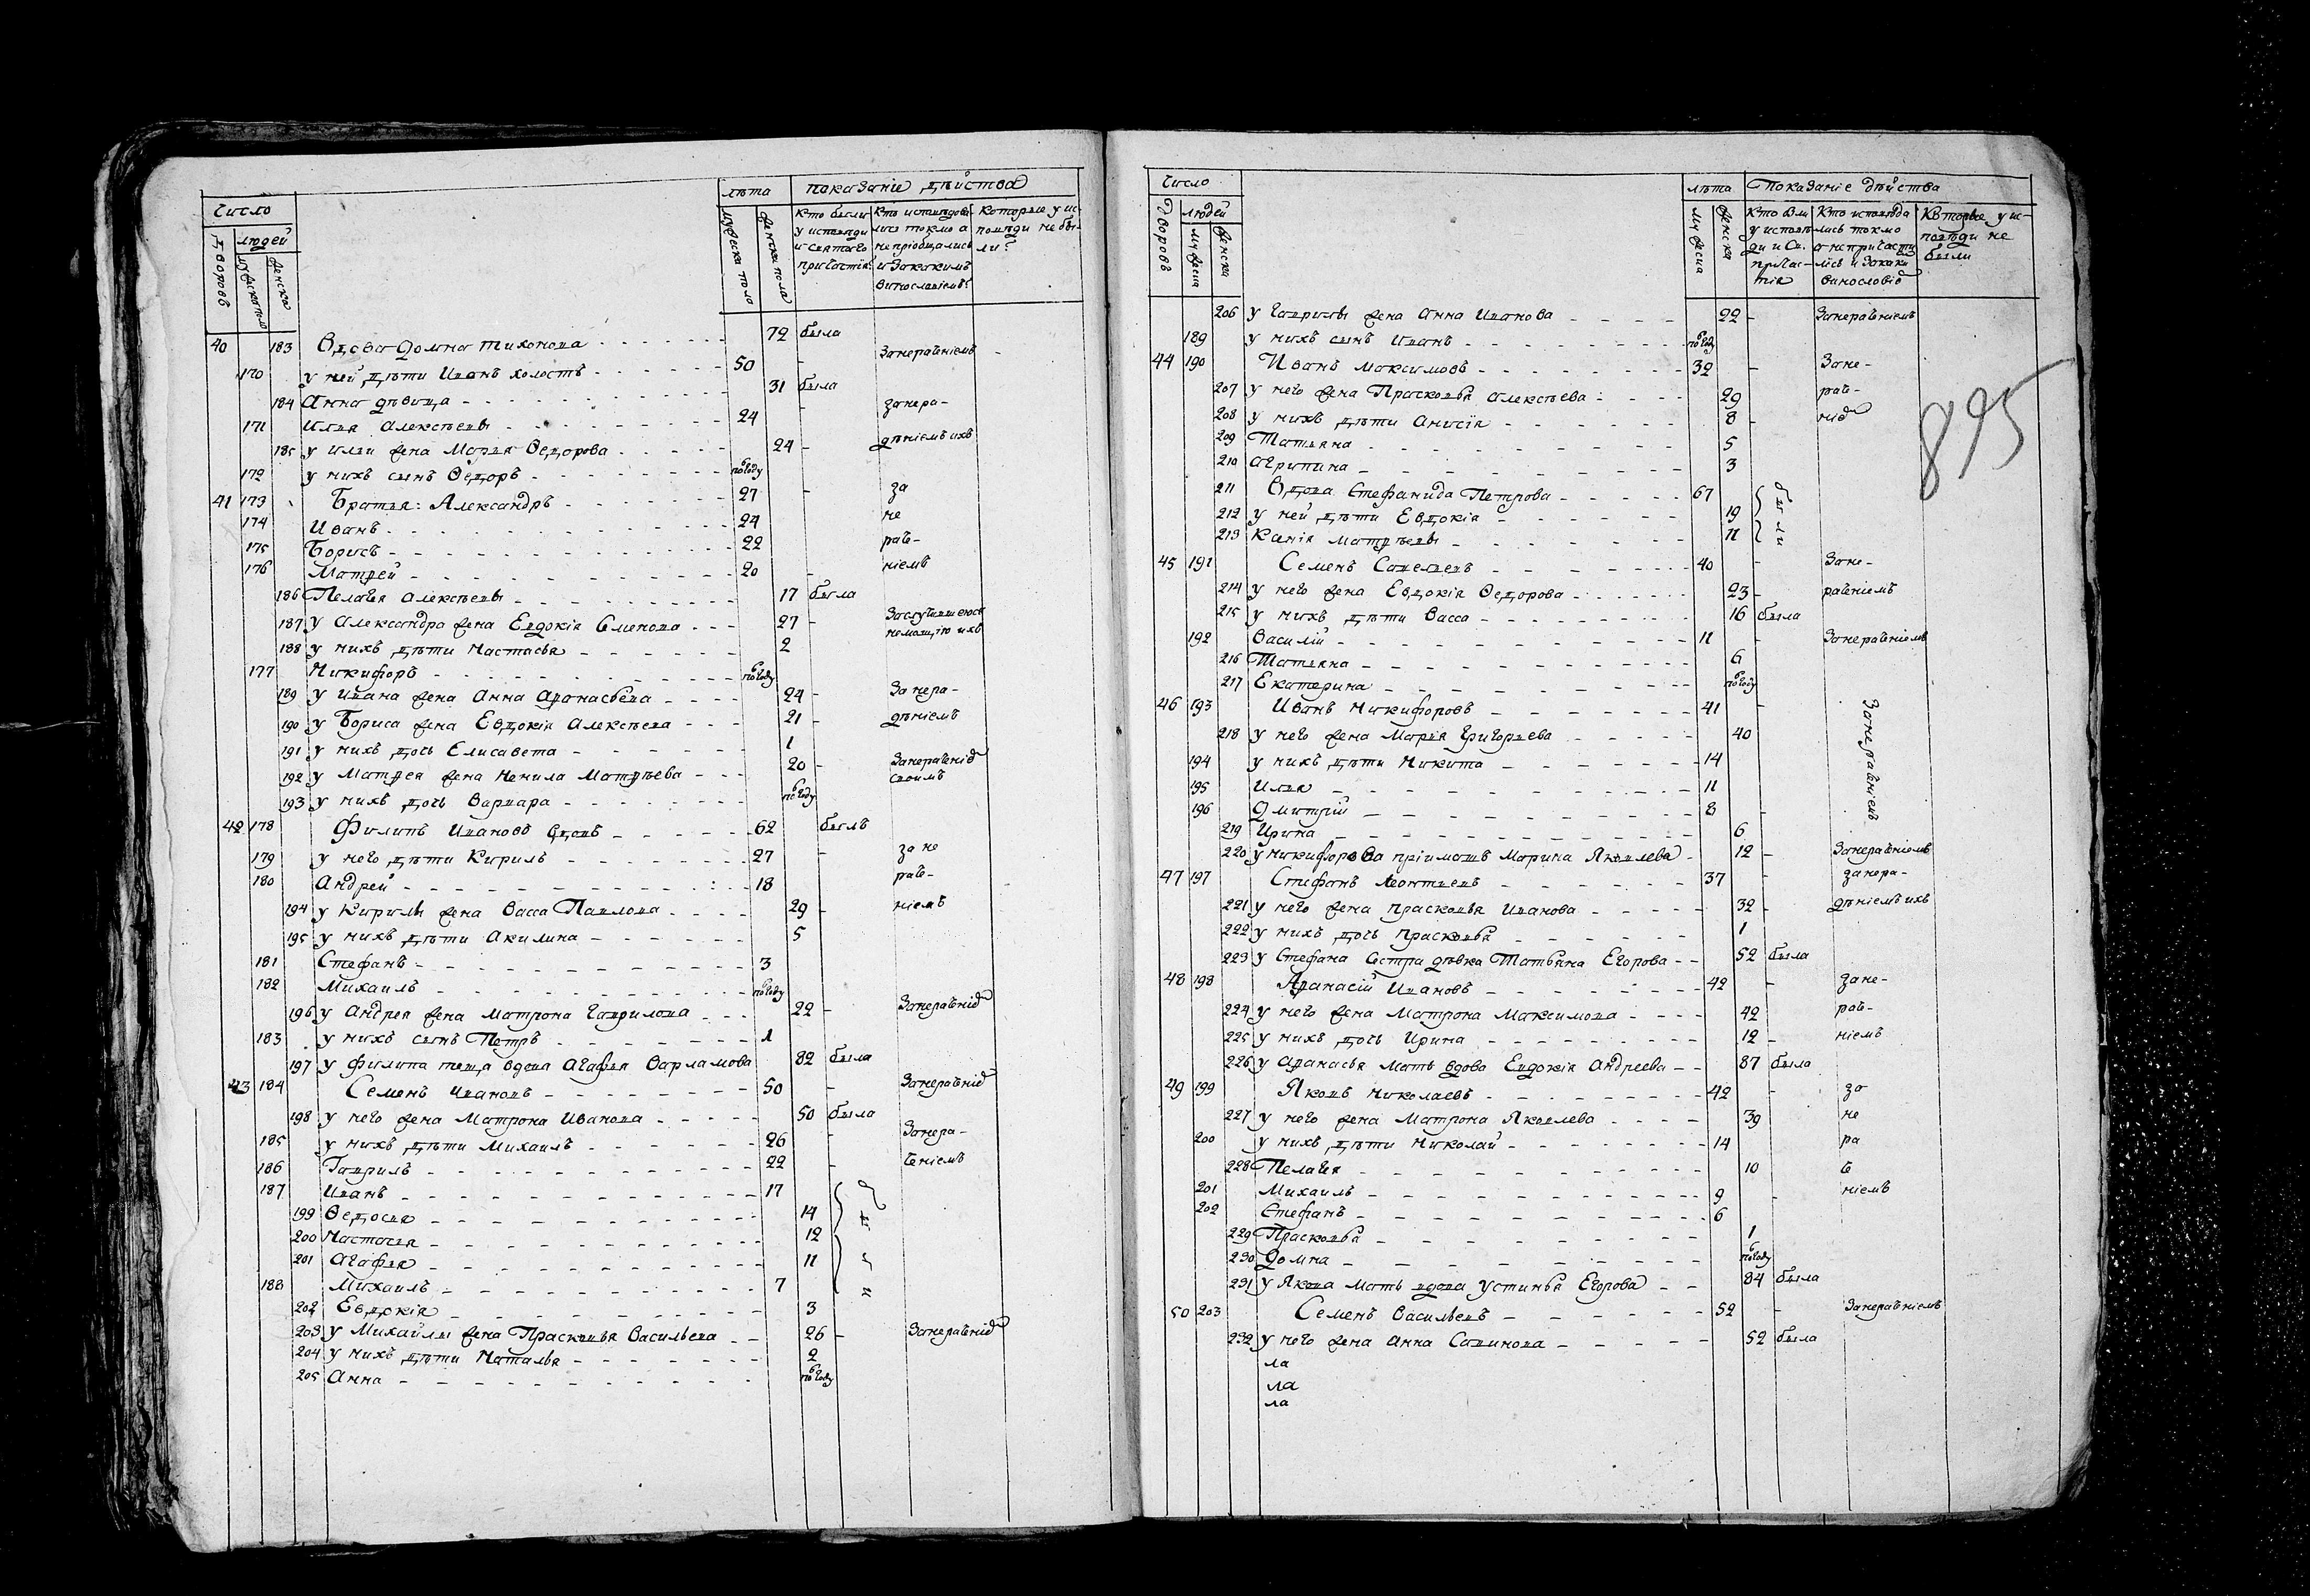 Число
лѣта показаніе дѣйства
Дворовъ людей мужеска пола женска
мужеска пола женска пола Кто были у исповѣди и святаго причастія? Кто исповѣдовались токмо а не пріобщались и за какимъ винословіемъ? Которые у исповѣди не были?
40 183 Вдова Домна Тихонова 72 была
170 у ней дѣти Иванъ холостъ 50 - занерадѣніемъ
184 Анна дѣвица 31 была
171 Илья Алексѣевы 24 - занера-
185 у Ильи жена Марья Ѳедорова 24 - дѣніемъ ихъ
172 у нихъ сынъ Ѳедоръ полгоду
41 173 Братья: Александръ 27 - за
174 Иванъ 24 не
175 Борисъ 22 рад-
176 Матвей 20 - ніемъ
186 Пелагея Алексѣевы 17 была
187 у Александра жена Евдокія Семенова 27 - Заслучившеюся
188 у нихъ дѣти Настасья 2 немощію ихъ
177 Никифоръ полгоду
189 у Ивана жена Анна Аѳонасьева 24 - Занера-
190 у Бориса жена Евдокія Алексѣева 21 - дѣніемъ
191 у нихъ дочь Елисавета 1
192 у Матвея жена Ненила Матвѣева 20 - Занерадѣніе своимъ
193 у нихъ дочь Варвара полгоду
42 178 Филипъ Ивановъ вдовъ 62 былъ
179 у него дѣти Кирилъ 27 - за не
180 Андрей 18 рад-
194 у Кирилы жена Васса Павлова 29 - ніемъ
195 у нихъ дѣти Акилина 5
181 Стефанъ 3
182 Михаилъ полгоду
196 у Андрея жена Матрона Гаврилова 22 - Занерадѣніе
183 у нихъ сынъ Петръ 1
197 у Филипа теща вдова Агафья Варламова 82 была
43 184 Семенъ Ивановъ 50 - Занерадѣніе
198 у него жена Матрона Иванова 50 была
185 у нихъ дѣти Михаилъ 26 - Занера-
186 Гаврилъ 22 - деніемъ
187 Иванъ 17
199 Ѳедосья 14
200 Настасья 12
201 Агафья 11
188 Михаилъ 7
202 Евдокія 3
203 у Михайлы жена Прасковья Васильева 26 - Занерадѣніе
204 у нихъ дѣти Наталья 2
205 Анна полгоду
Число
лѣта Показаніе дѣйства
Дворовъ людей мужеска женска
мужеска женска Кто были у исповѣди и Св. причастія Кто исповѣдались токмо а не причастились и за каки винословіе Которые у исповѣди не были
206 у Гаврилы жена Анна Иванова 22 - Занерадѣніемъ
189 у нихъ сынъ Иванъ полгоду
44 190 Иванъ Максимовъ 32 - Зане-
207 у него жена Прасковья Алексѣева 29 рад-
208 у нихъ дѣти Анисія 8 - ніе
895
209 Татьяна 5
210 Агрипина 3
211 Вдова Стефанида Петрова 67
212 у ней дѣти Евдокія 19 были
213 Ксенія Матвѣевы 11
45 191 Семенъ Савельевъ 40 - Зане-
214 у него жена Евдокія Ѳедорова 23 - радѣніемъ
215 у нихъ дѣти Васса 16 была
192 Василій 11 - Занерадѣніемъ
216 Татьяна 6
217 Екатерина полгоду
46 193 Иванъ Никифоровъ 41 - Занерадѣніемъ
218 у него жена Марья Григорьева 40
194 у нихъ дѣти Никита 14
195 Илья 11
196 Дмитрій 8 -
219 Ирина 6
220 у Никифорова пріимошъ Марина Яковлева 12 - Занерадѣніемъ
47 197 Стефанъ Леонтьевъ 37 - занера-
221 у него жена Прасковья Иванова 32 - дѣніемъ ихъ
222 у нихъ дочь Прасковья 1
223 у Стефана сестра дѣвка Татьяна Егорова 52 была
48 198 Аѳанасій Ивановъ 42 - зане-
224 у него жена Матрона Максимова 42 рад-
225 у нихъ дочь Ирина 12 - ніемъ
226 у Аѳанасья мать вдова Евдокія Андреева 87 была
49 199 Яковъ Николаевъ 42 - за
227 у него жена Матрона Яковлева 39 не
200 у нихъ дѣти Николай 14 ра
228 Пелагея 10 д
201 Михаилъ 9 - ніемъ
202 Стефанъ 6
229 Прасковья 1
230 Домна полгоду
231 у Якова мать вдова Устинья Егорова 84 была
50 203 Семенъ Васильевъ 52 - Занерадѣніемъ
232 у него жена Анна Савинова 52 была
ла
ла
ла